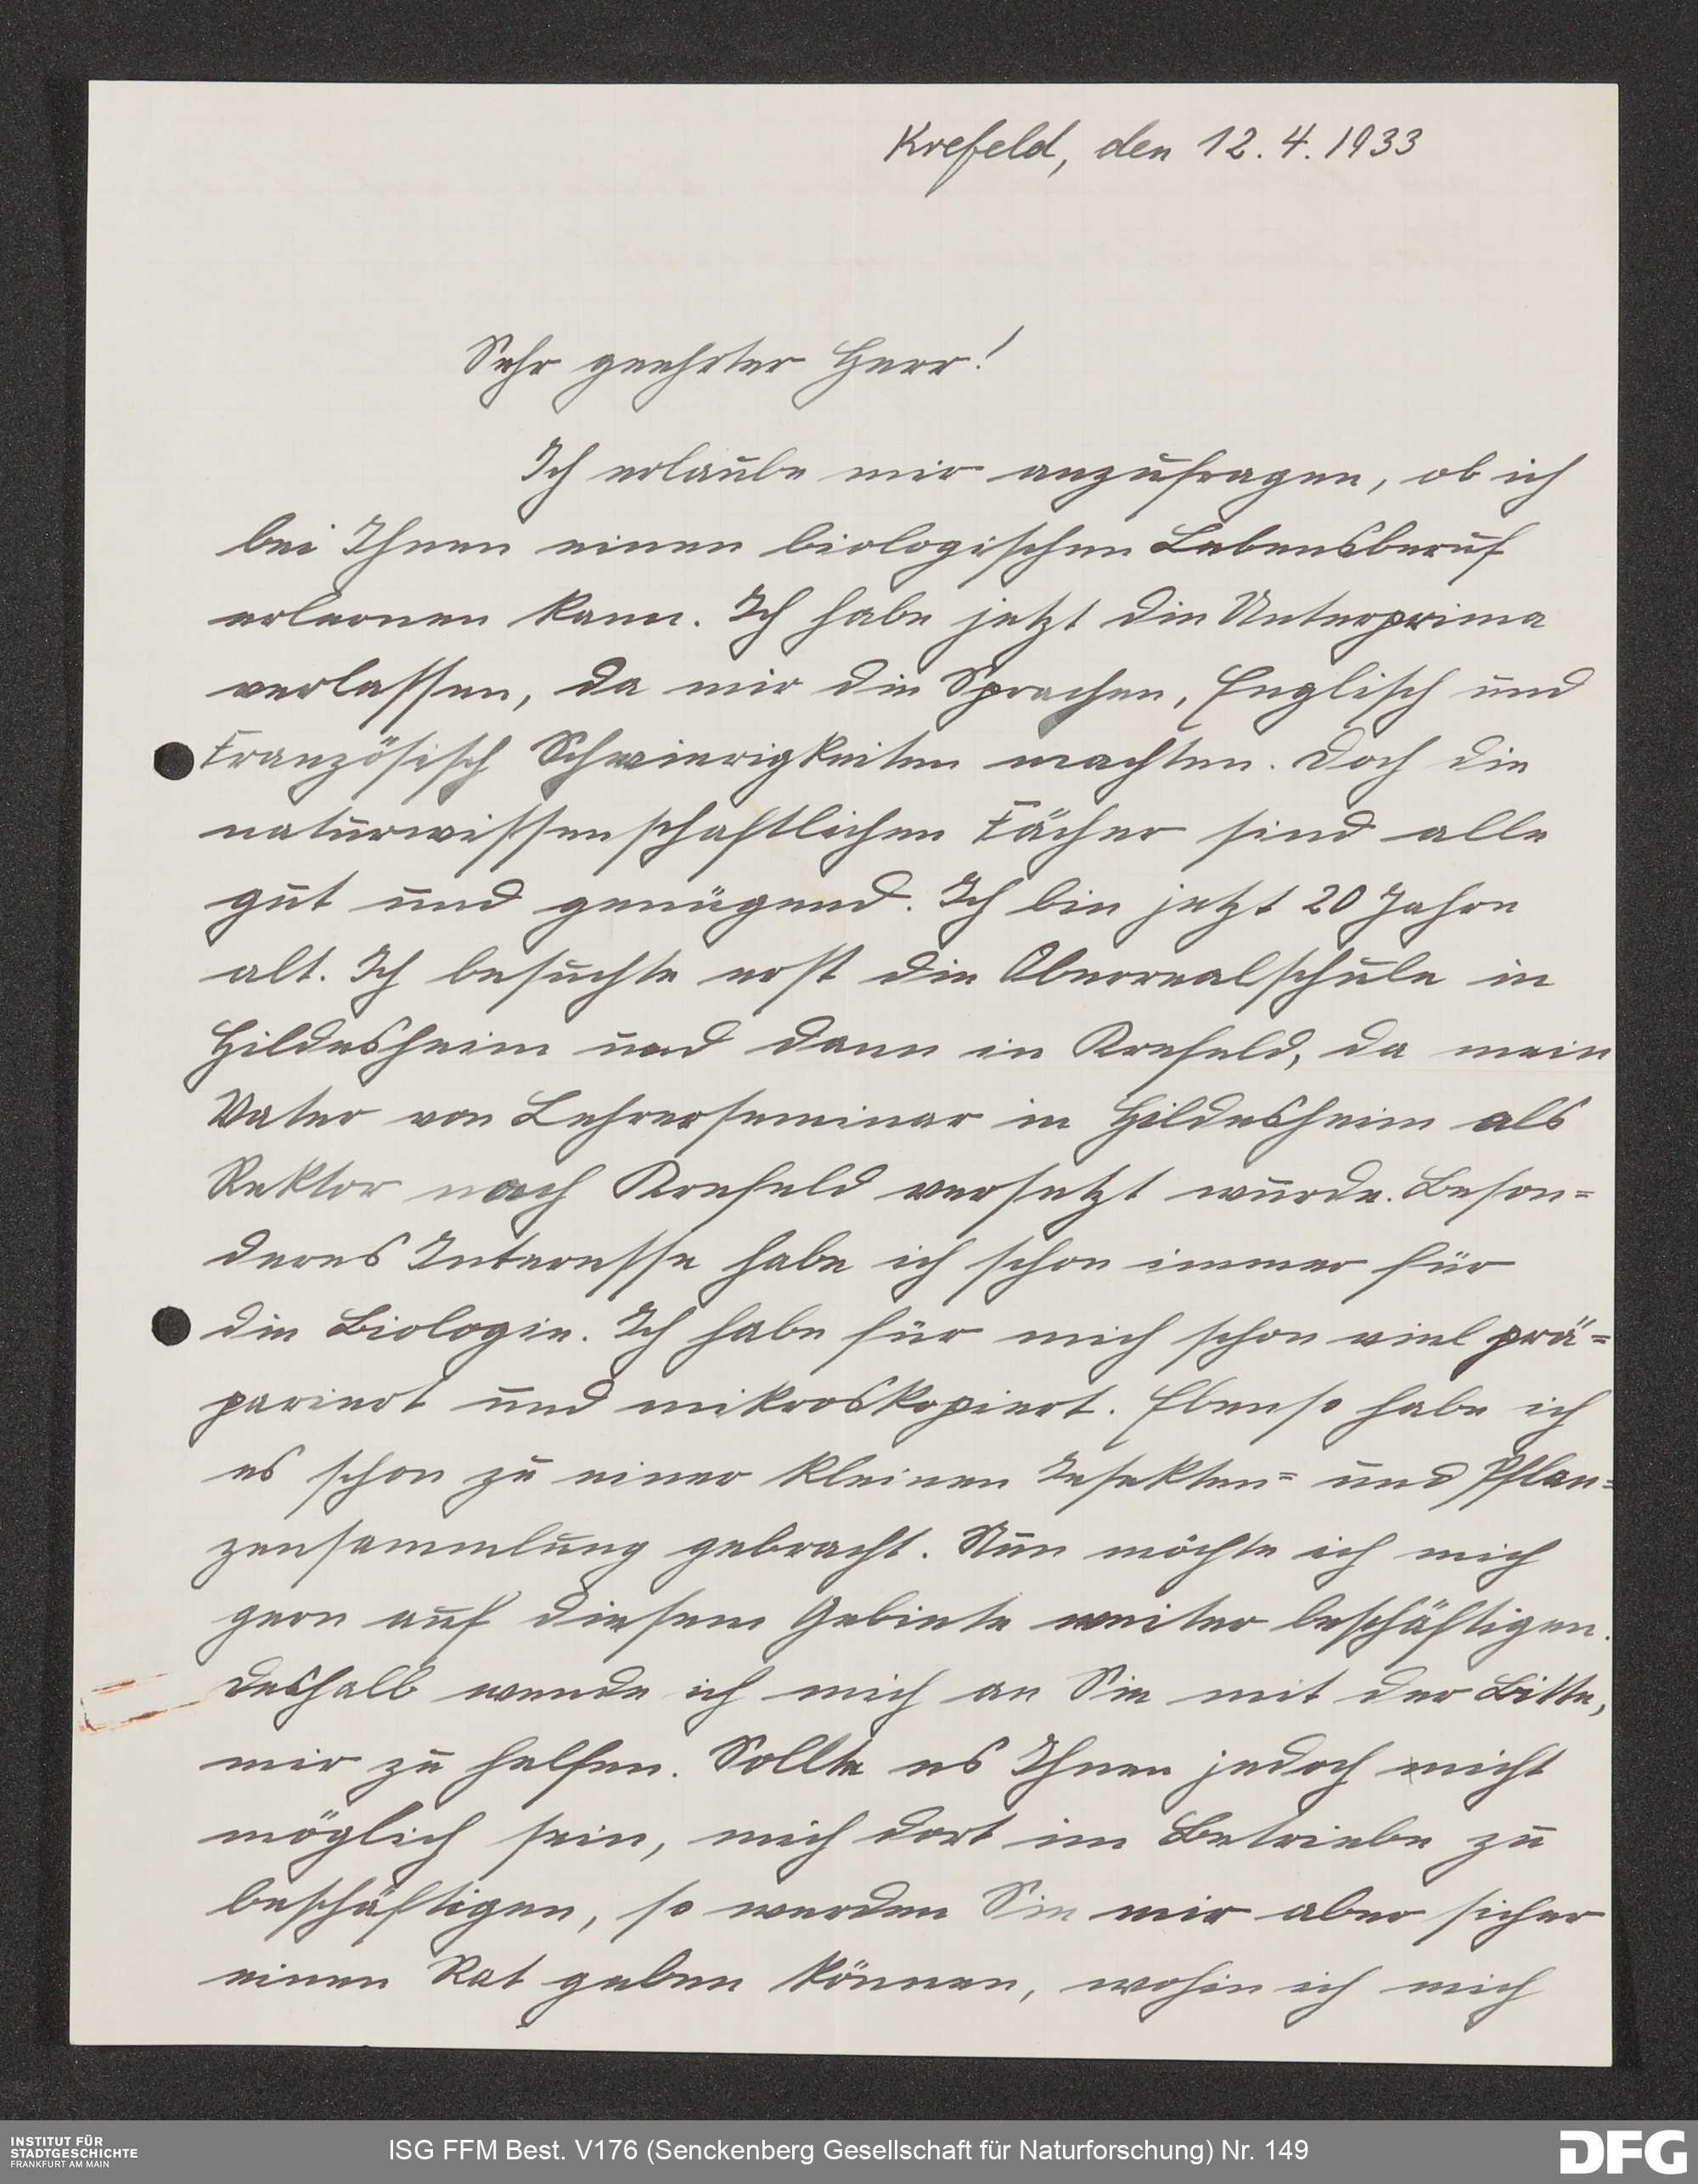 Krefeld, den 12. 4. 1933
Sehr geehrter Herr!
Ich erlaube mir anzufragen, ob ich
bei Ihnen einen biologischen Lebensberuf
erlernen kann. Ich habe jetzt die Unterprima
verlassen, da mir die Sprachen, Englisch und
Französisch Schwierigkeiten machten. Doch die
naturwissenschaftlichen Fächer sind alle
gut und genügend. Ich bin jetzt 20 Jahre
alt. Ich besuchte erst die Oberrealschule in
Hildesheim und dann in Krefeld, da mein
Vater von Lehrerseminar in Hildesheim als
Rektor nach Krefeld versetzt wurde. Beson=
deres Interesse habe ich schon immer für
die Biologie. Ich habe für mich schon viel prä=
pariert und mikroskopiert. Ebenso habe ich
es schon zu einer kleinen Insekten= und Pflan=
zensammlung gebracht. Nun möchte ich mich
gern auf diesem Gebiete weiter beschäftigen.
Deshalb wende ich mich an Sie mit der Bitte,
mir zu helfen. Sollte es Ihnen jedoch nicht
möglich sein, mich dort im Betriebe zu
beschäftigen, so werden Sie mir aber sicher
einen Rat geben können, wohin ich mich
INSTITUT FÜR
STADTGESCHICHTE
FRANKFURT AM MAIN
ISG FFM Best. V176 (Senckenberg Gesellschaft für Naturforschung) Nr. 149
DFG